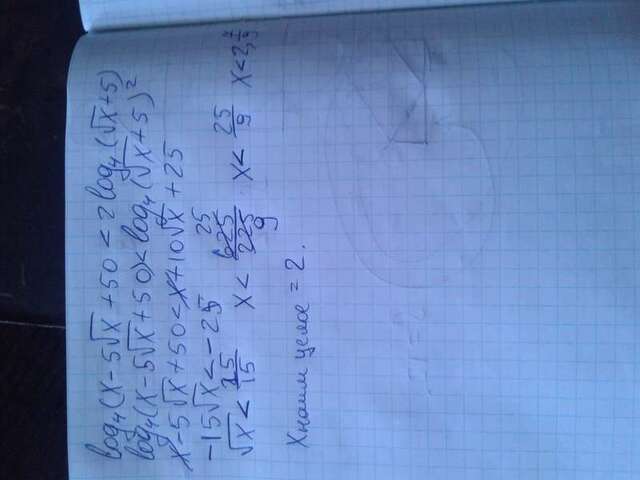 log₄(x-5√x+50 < 2log₄(√x+5)
log₄(x-5√x+50)<log₄(√x+5)²
x-5√x+50<x+10√x+25
-15√x<-25
√x < 25/15 x < 625/225 25 9 x < 25/9 x<2,7/9
Xнаим целое = 2.